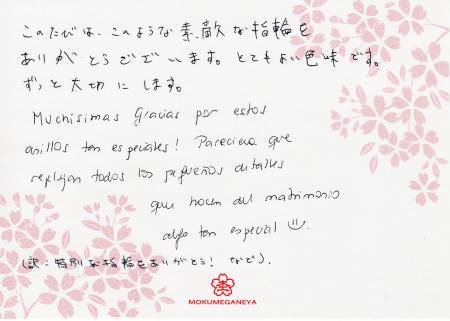 このたびは、このような素敵な指輪を
ありがとうございます。とてもよい色味です。
ずっと大切にします。
Muchísimas Gracias por estos
anillos tan especiales! Pareciera que
reflejan todos los pequeños detalles
que hacen del matrimonio
algo tan especial
(訳：特別な指輪をありがとう! など).
MOKUMEGANEYA